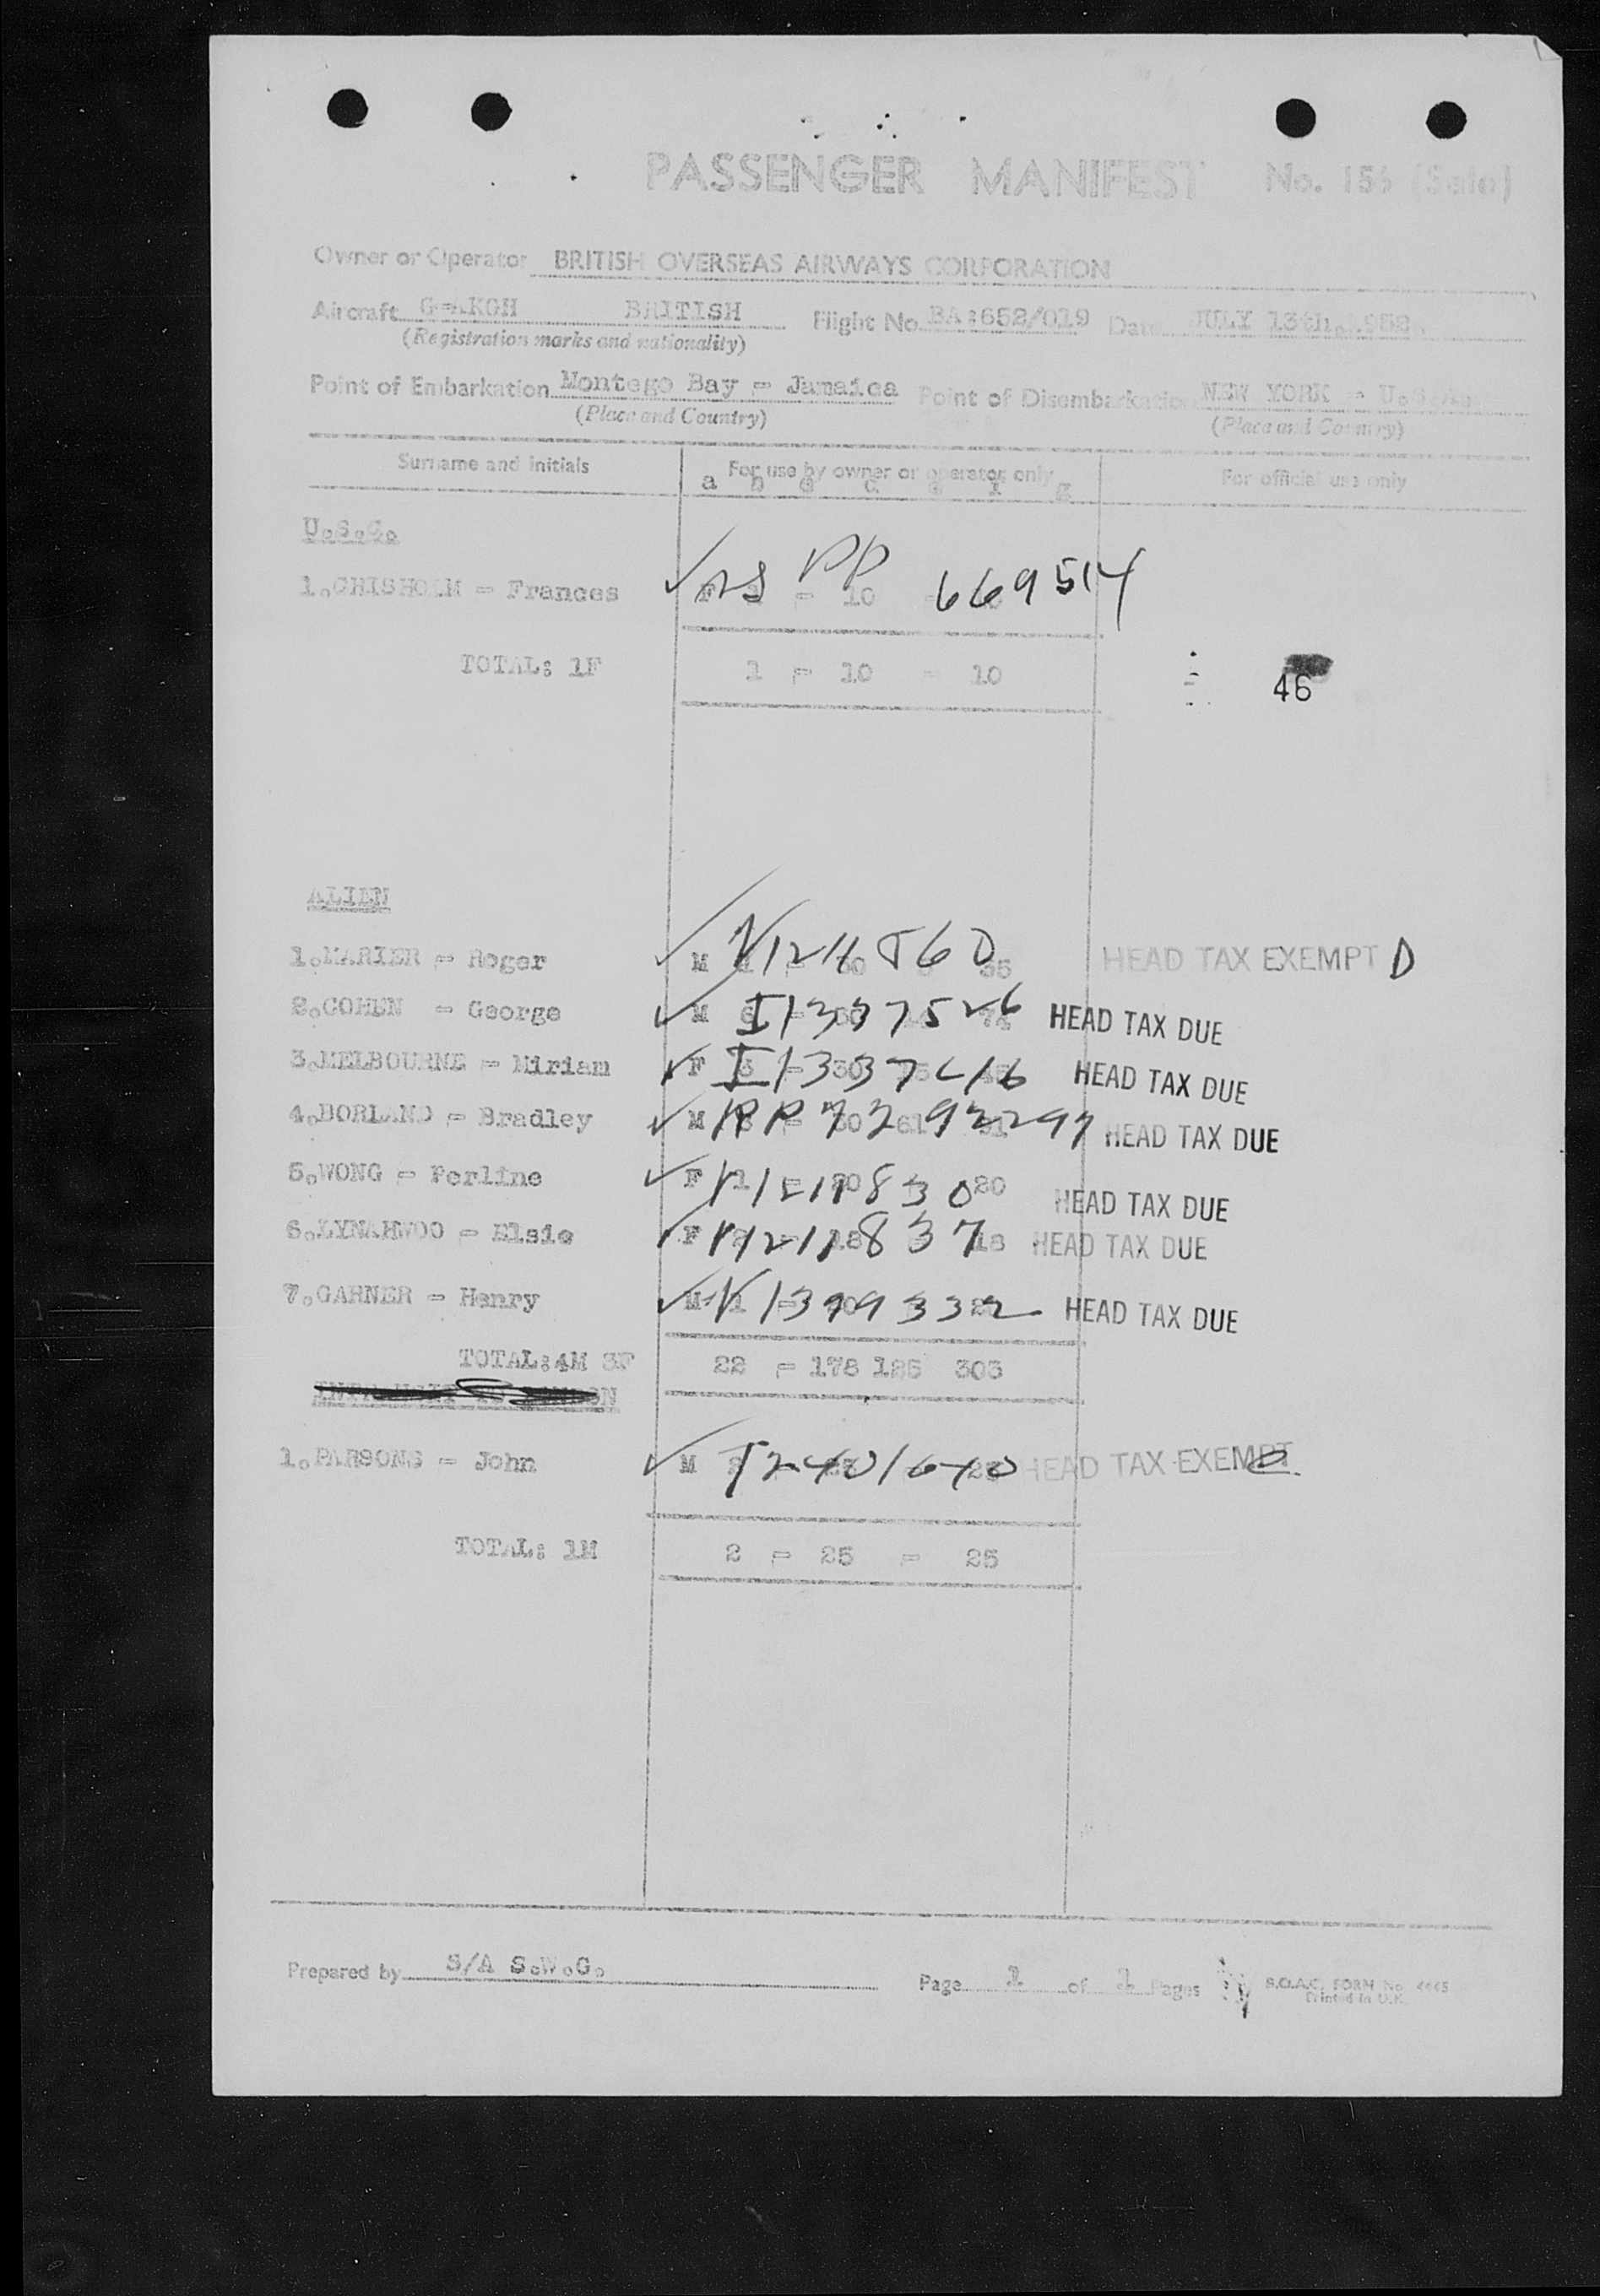 PASSENGER MANIFEST No. 156 (Sale)
Owner or Operator BRITISH OVERSEAS AIRWAYS CORPORATION
Aircraft G-AKGH BRITISH Flight No. BA:652/019 Date JULY 13th, 1952.
(Registration marks and nationality)
Point of Embarkation Montego Bay - Jamaica Point of Disembarkation NEW YORK - U.S.A.
(Place and Country) (Place and Country)
Surname and initials For use by owner or operator only For official use only
a b c d e f g
U.S.C.
1.CHISHOLM - Frances PP 669514
F - 10
TOTAL: 1F 1 - 10 - 10
46
ALIEN
1.MARIER - Roger M 35 HEAD TAX EXEMPT D
2.COHEN - George M I1337526 HEAD TAX DUE
3.MELBOURNE - Miriam F HEAD TAX DUE
4.BORLAND - Bradley M HEAD TAX DUE
5.WONG - Perline F 20 HEAD TAX DUE
6.LYNAHWOO - Elsie F 18 HEAD TAX DUE
7.GARNER - Henry M HEAD TAX DUE
TOTAL:4M 3F 22 - 178 125 303
1.PARSONS - John M HEAD TAX EXEMPT
TOTAL: 1M 2 - 25 - 25
Prepared by S/A S.W.G. Page 1 of 1 Pages B.O.A.C. FORM No 4445
Printed in U.K.